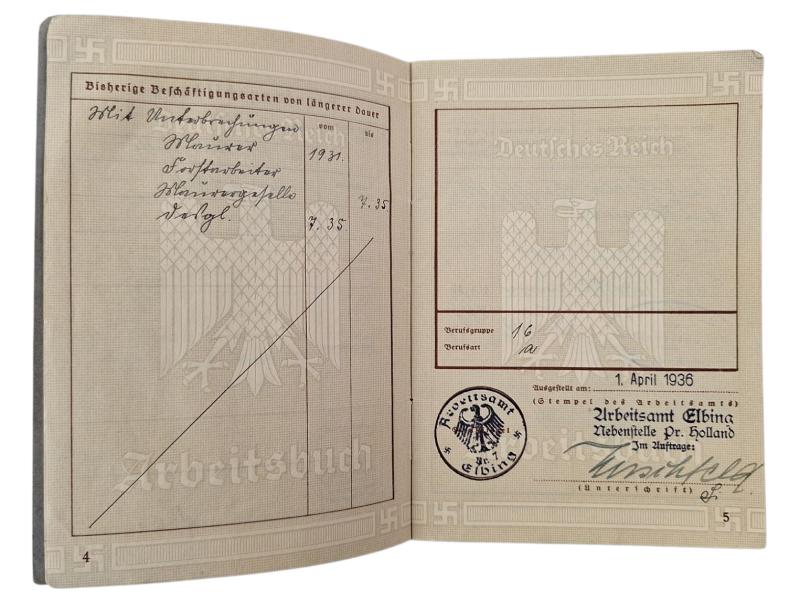 Bisherige Beschäftigungsarten von längerer Dauer
vom
bis
Mit Unterbrechungen
Maurer 1931.
Forstarbeiter
Maurergeselle 7.35
desgl. 7.35
Arbeitsbuch
4
Deutsches Reich
Berufsgruppe 16
Berufsart a
Ausgestellt am: 1. April 1936
(Stempel des Arbeitsamts)
Arbeitsamt Elbing
Nebenstelle Pr. Holland
Im Auftrage:
(Unterschrift)
Arbeitsamt
Nr. 7
Elbing
5